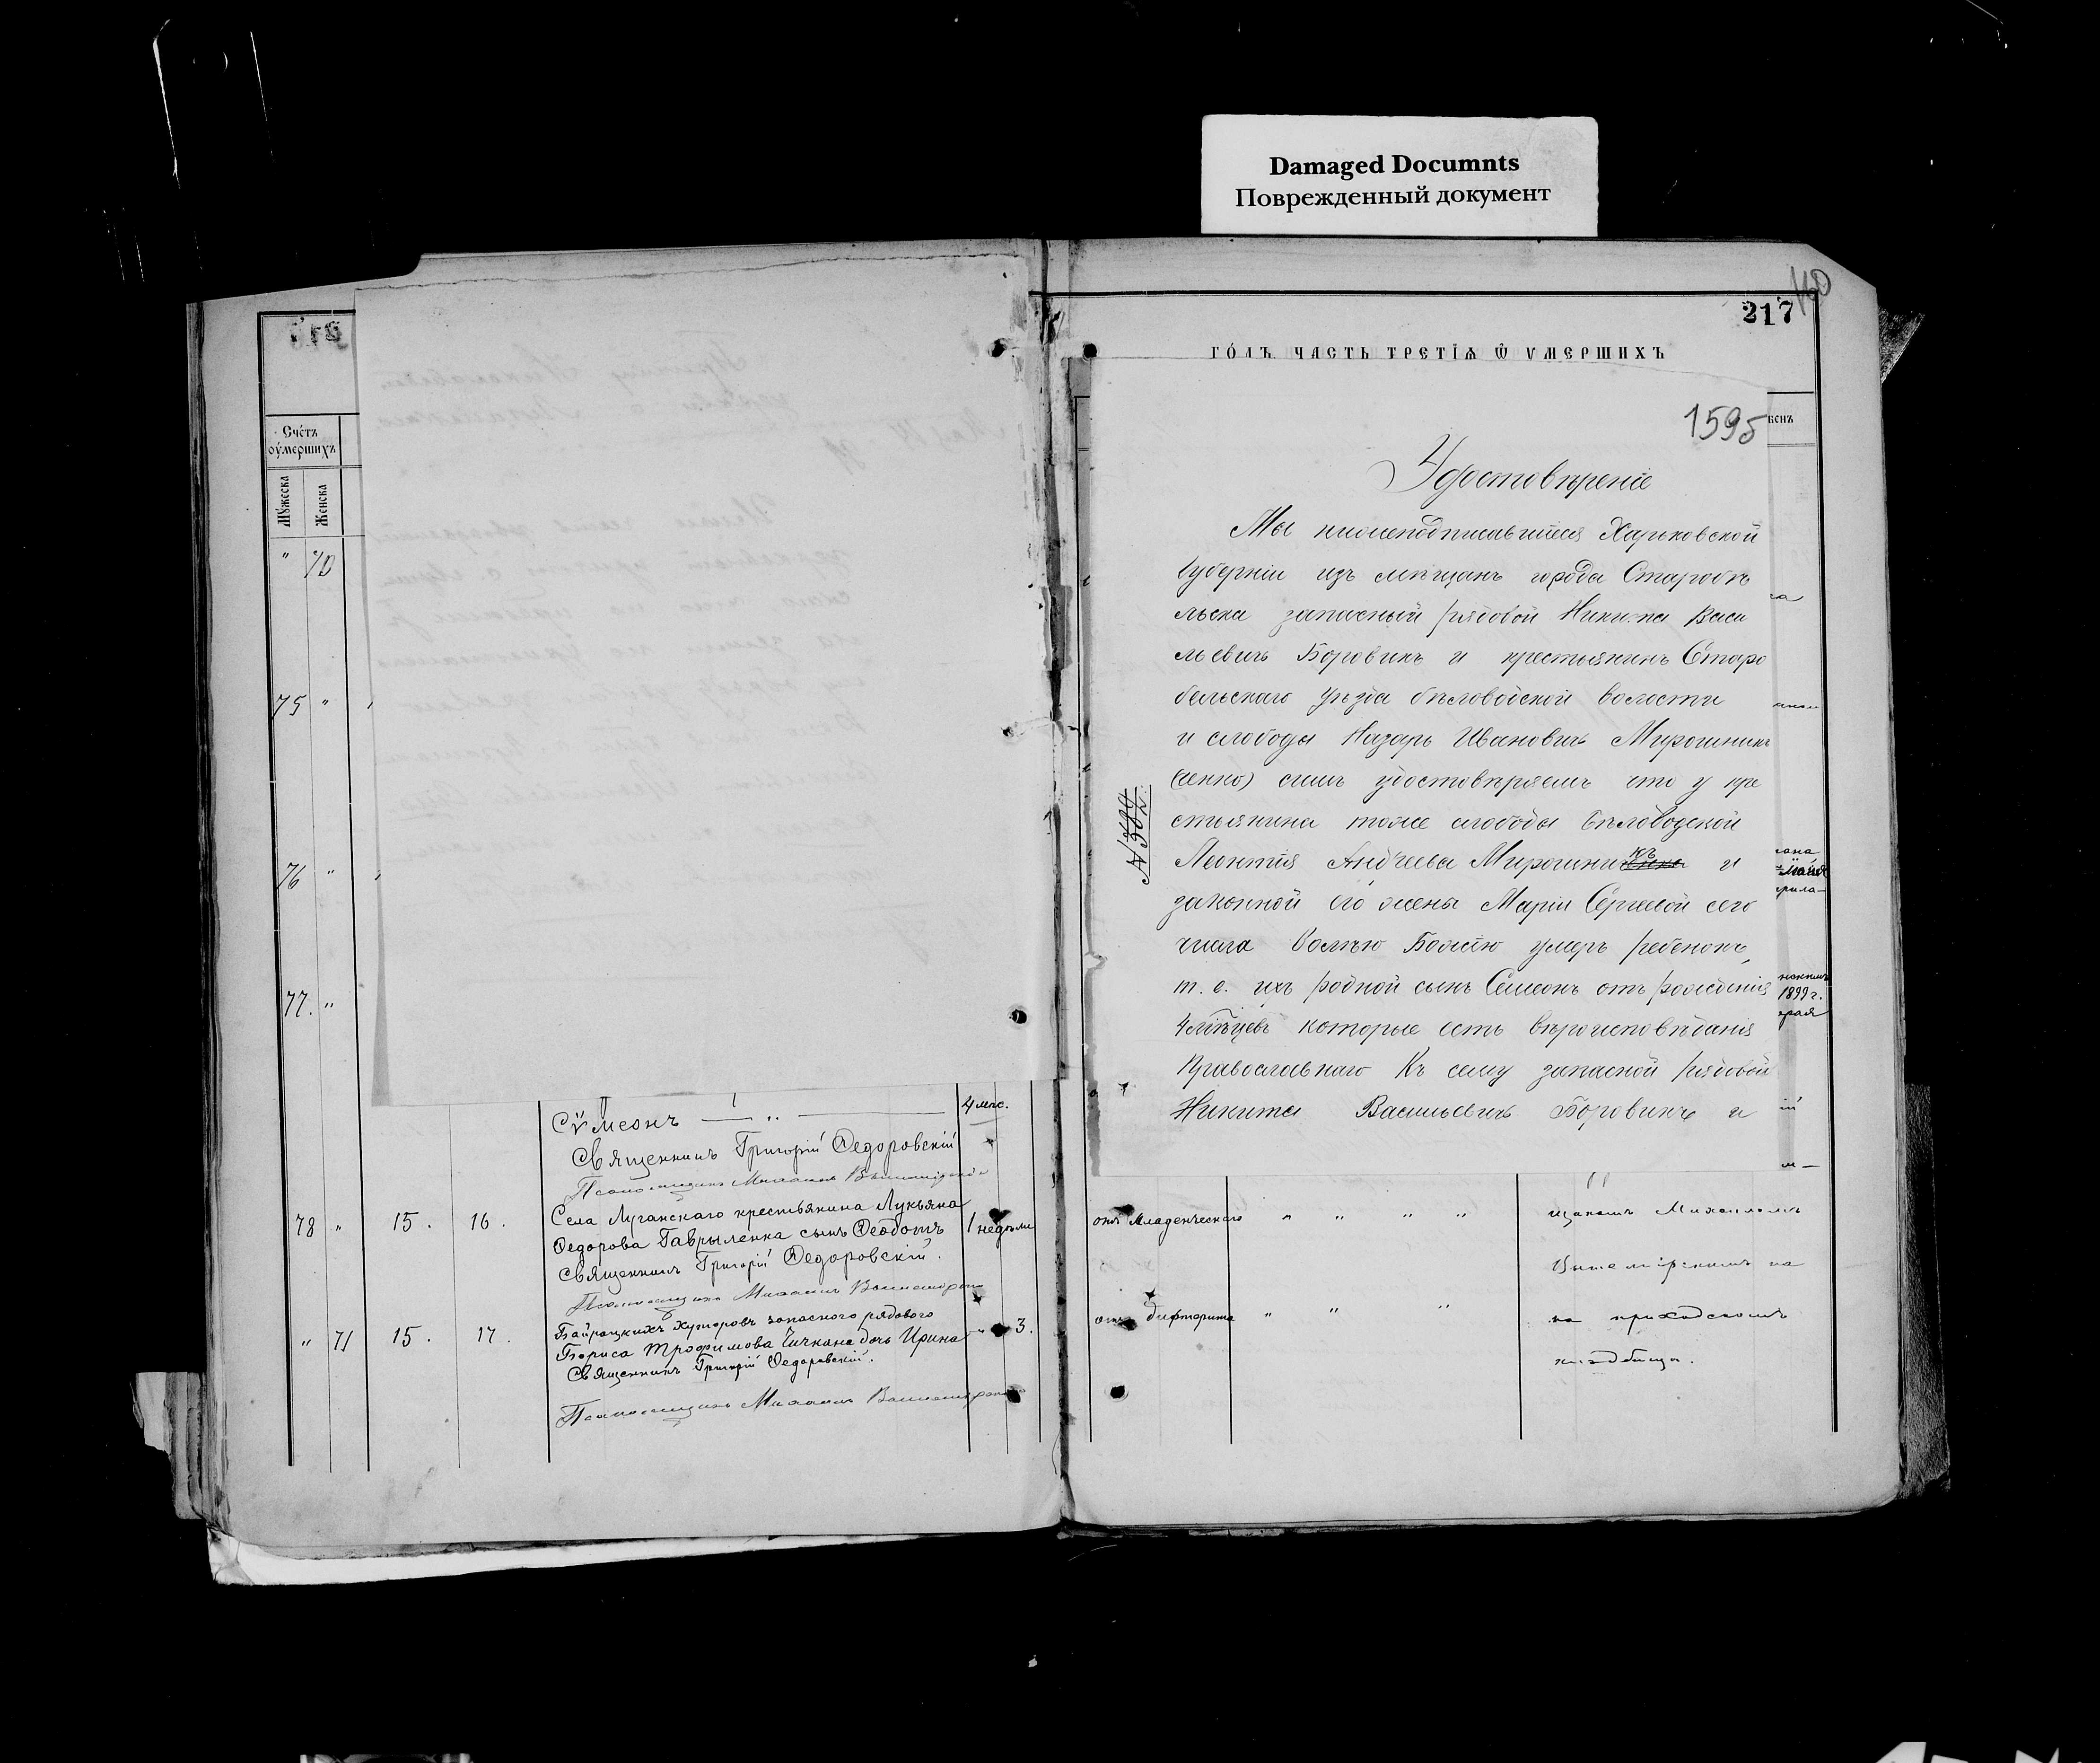 Damaged Documnts
Поврежденный документ
Счéтъ
оу́мершихъ
Мꙋжеска
Женска
" 70
75 "
76 "
77. "
Сѵмеонъ — " —
4 мѣс.
Священникъ Григорій Ѳедоровскій
Псаломщикъ Михаилъ
78 " 15. 16.
Села Луганскаго крестьянина Лукьяна
Ѳедорова Гаврыленка сынъ Ѳеодотъ
1 недѣли
Священникъ Григорій Ѳедоровскій.
Псаломщикъ Михаилъ
" 71 15. 17.
Байрацкихъ хуторовъ запаснаго рядового
Бориса Трофимова Чичкана дочь Ирина
" 3.
Священникъ Григорій Ѳедоровскій.
Псаломщикъ Михаилъ
160
217
ГО́ДЪ ЧАСТЬ ТРЕТІѦ Ѿ УМЕРШИХЪ
1595
Удостовѣреніе
Мы нижеподписавшіеся Харьковской
Губерніи изъ мѣщанъ города Старобѣ
льска запасный рядовой Никита Васи
льевичъ Боровикъ и крестьянинъ Старо
бельскаго уѣзда бѣловодской волости
и слободы Назаръ Ивановичъ Мирошник
(енко) симъ удостовѣряемъ что у кре
стьянина тоже слободы бѣловодской
№ 582
Леонтія Андреева Мирошникъ и
законной его жены Маріи Сергѣевой сего
числа Волѣю Божіею умеръ ребенокъ,
т. е. ихъ родной сынъ Семеонъ отъ рожденія
4 мѣсяцевъ которые есть вѣроисповѣданія
Православнаго Къ сему запасной рядовой
Никита Васильевичъ Боровикъ и
1899 г.
отъ младенческаго " " " "
щикомъ Михаиломъ
на
отъ дифторита " " "
на приходскомъ
кладбищѣ.